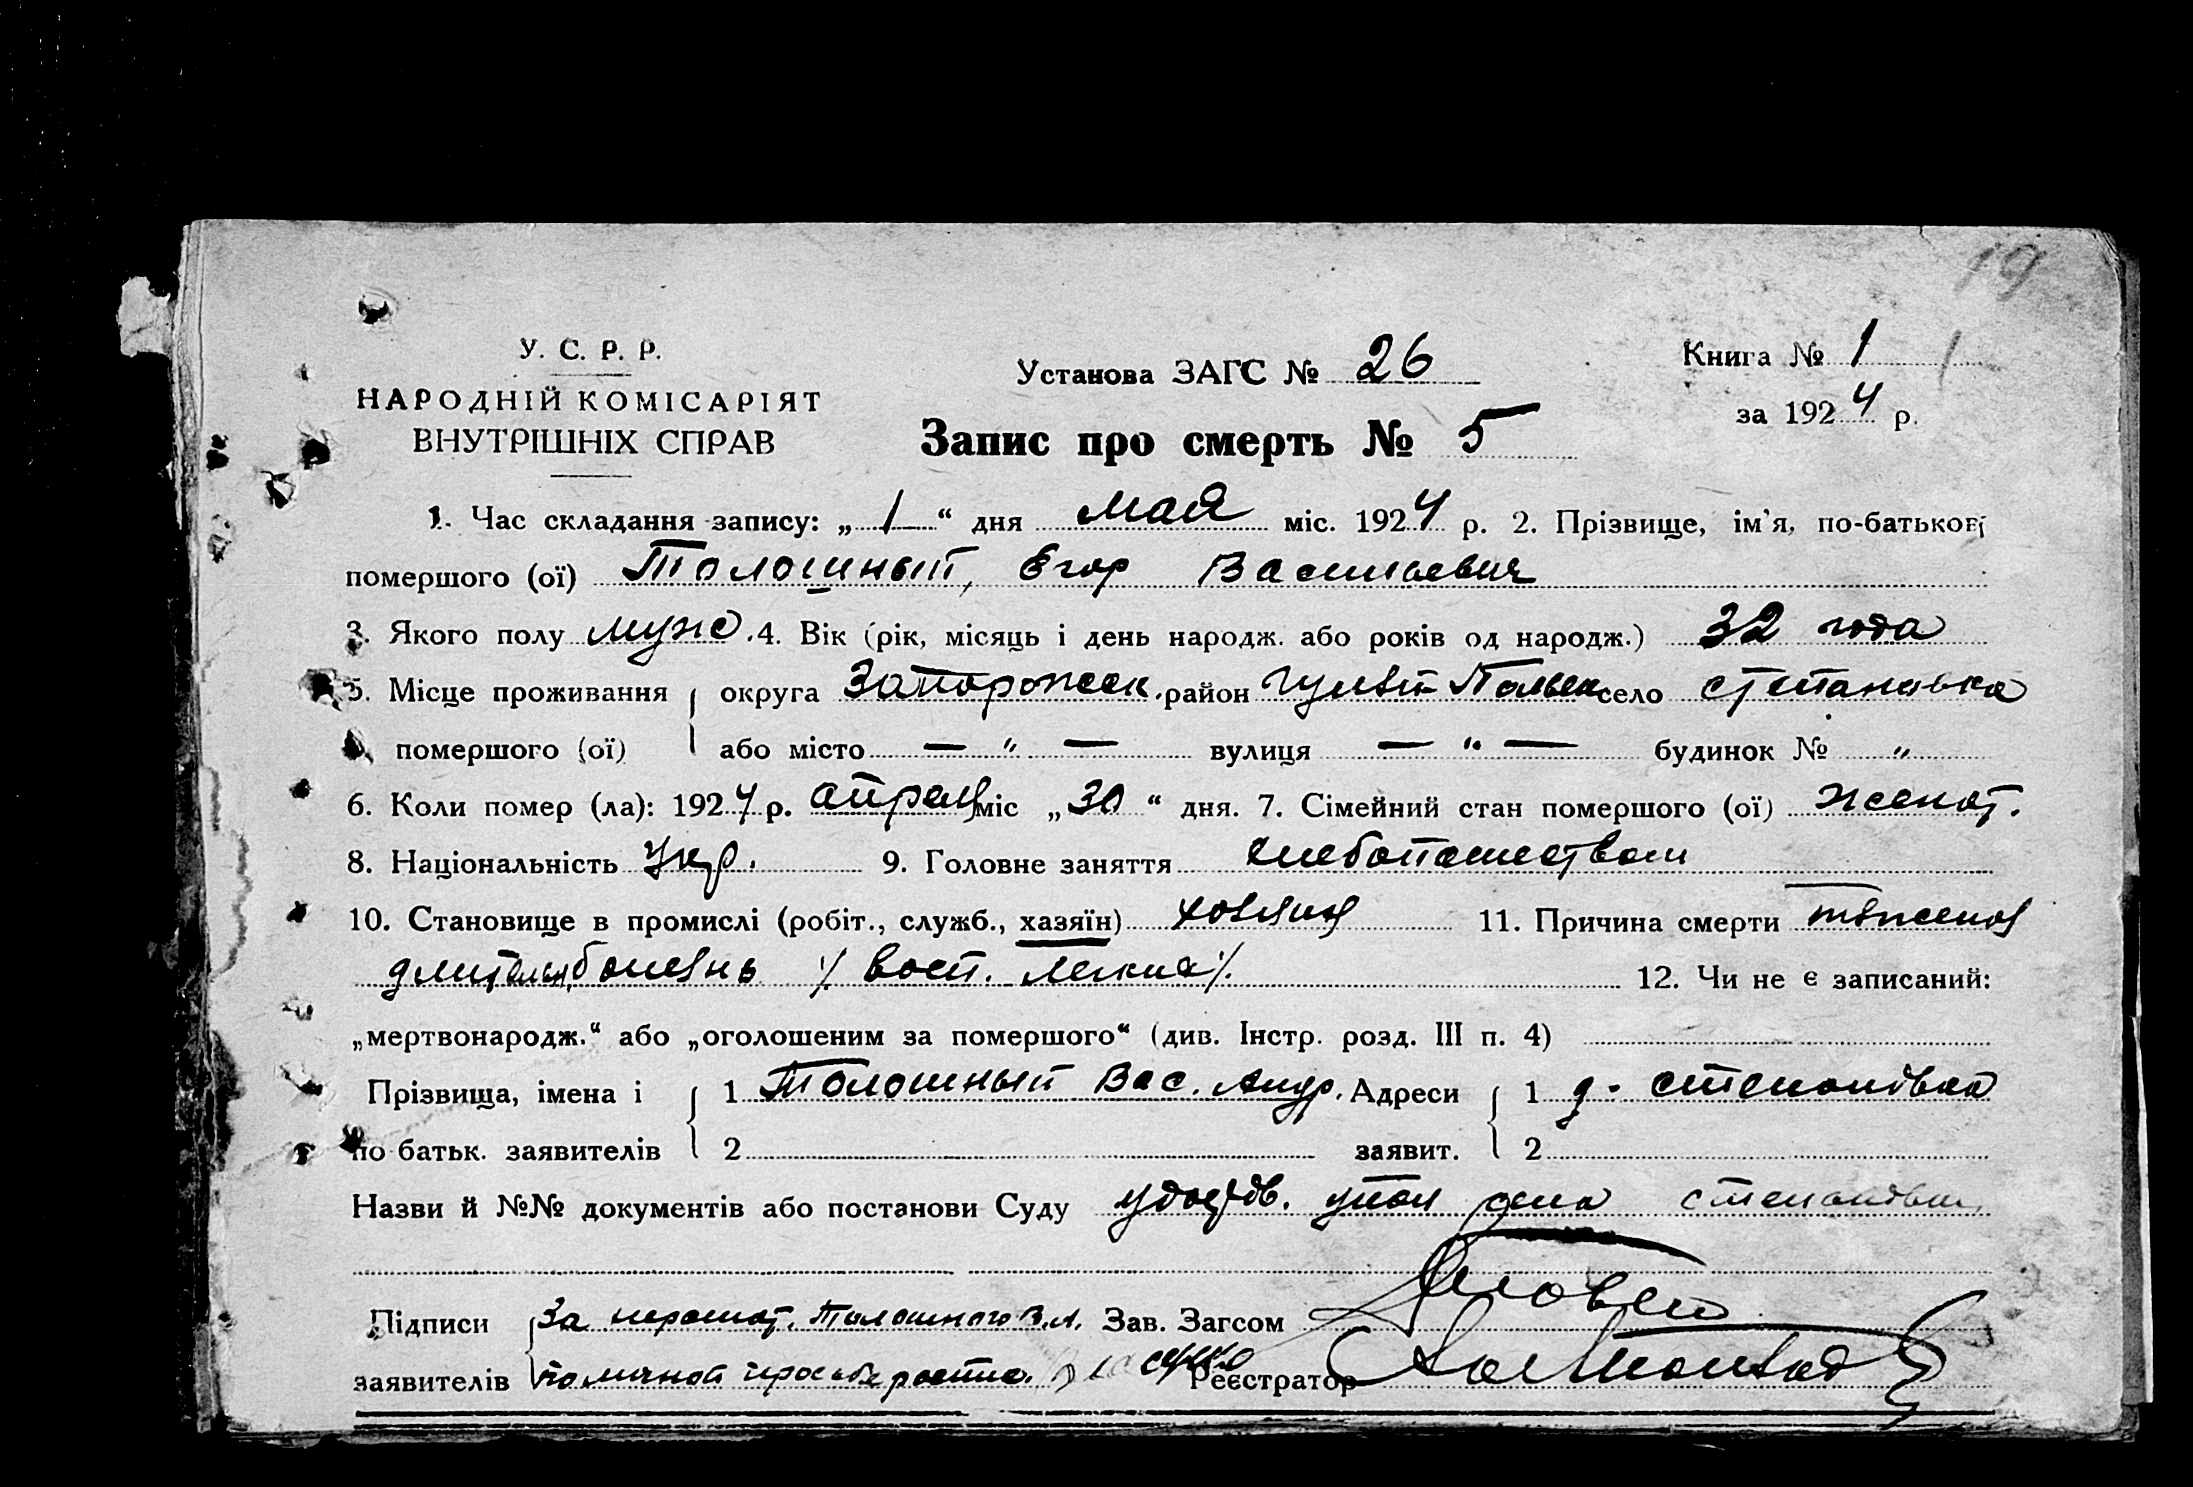 19
У. С. Р. Р.
НАРОДНІЙ КОМІСАРІЯТ
ВНУТРІШНІХ СПРАВ
Установа ЗАГС № 26
Книга № 1
за 1924 р.
Запис про смерть № 5
1. Час складання запису: „ 1 “ дня мая міс. 1924 р. 2. Прізвище, ім'я, по-батькові
помершого (ої) Толошный, Егор Васильевич
3. Якого полу муж. 4. Вік (рік, місяць і день народж. або років од народж.) 32 года
5. Місце проживання округа Запорожск. район Гуляй-Польск село Степановка
помершого (ої) або місто — " — вулиця — " — будинок № "
6. Коли помер (ла): 1924 р. апреля міс „ 30 “ дня. 7. Сімейний стан помершого (ої) женат.
8. Національність Укр. 9. Головне заняття хлебопашеством
10. Становище в промислі (робіт., служб., хазяїн) хозяин 11. Причина смерти тяжелая
длительн. болезнь /восп. легких/. 12. Чи не є записаний:
„мертвонародж.“ або „оголошеним за помершого“ (див. Інстр. розд. III п. 4)
Прізвища, імена і 1 Толошный Вас. Андр. Адреси 1 д. Степановка
по батьк. заявителів 2 заявит. 2
Назви й №№ документів або постанови Суду удост. упол села Степановки
Підписи За неграмот. Толошного В. А. Зав. Загсом
заявителів по личной просьбе распис. Реєстратор